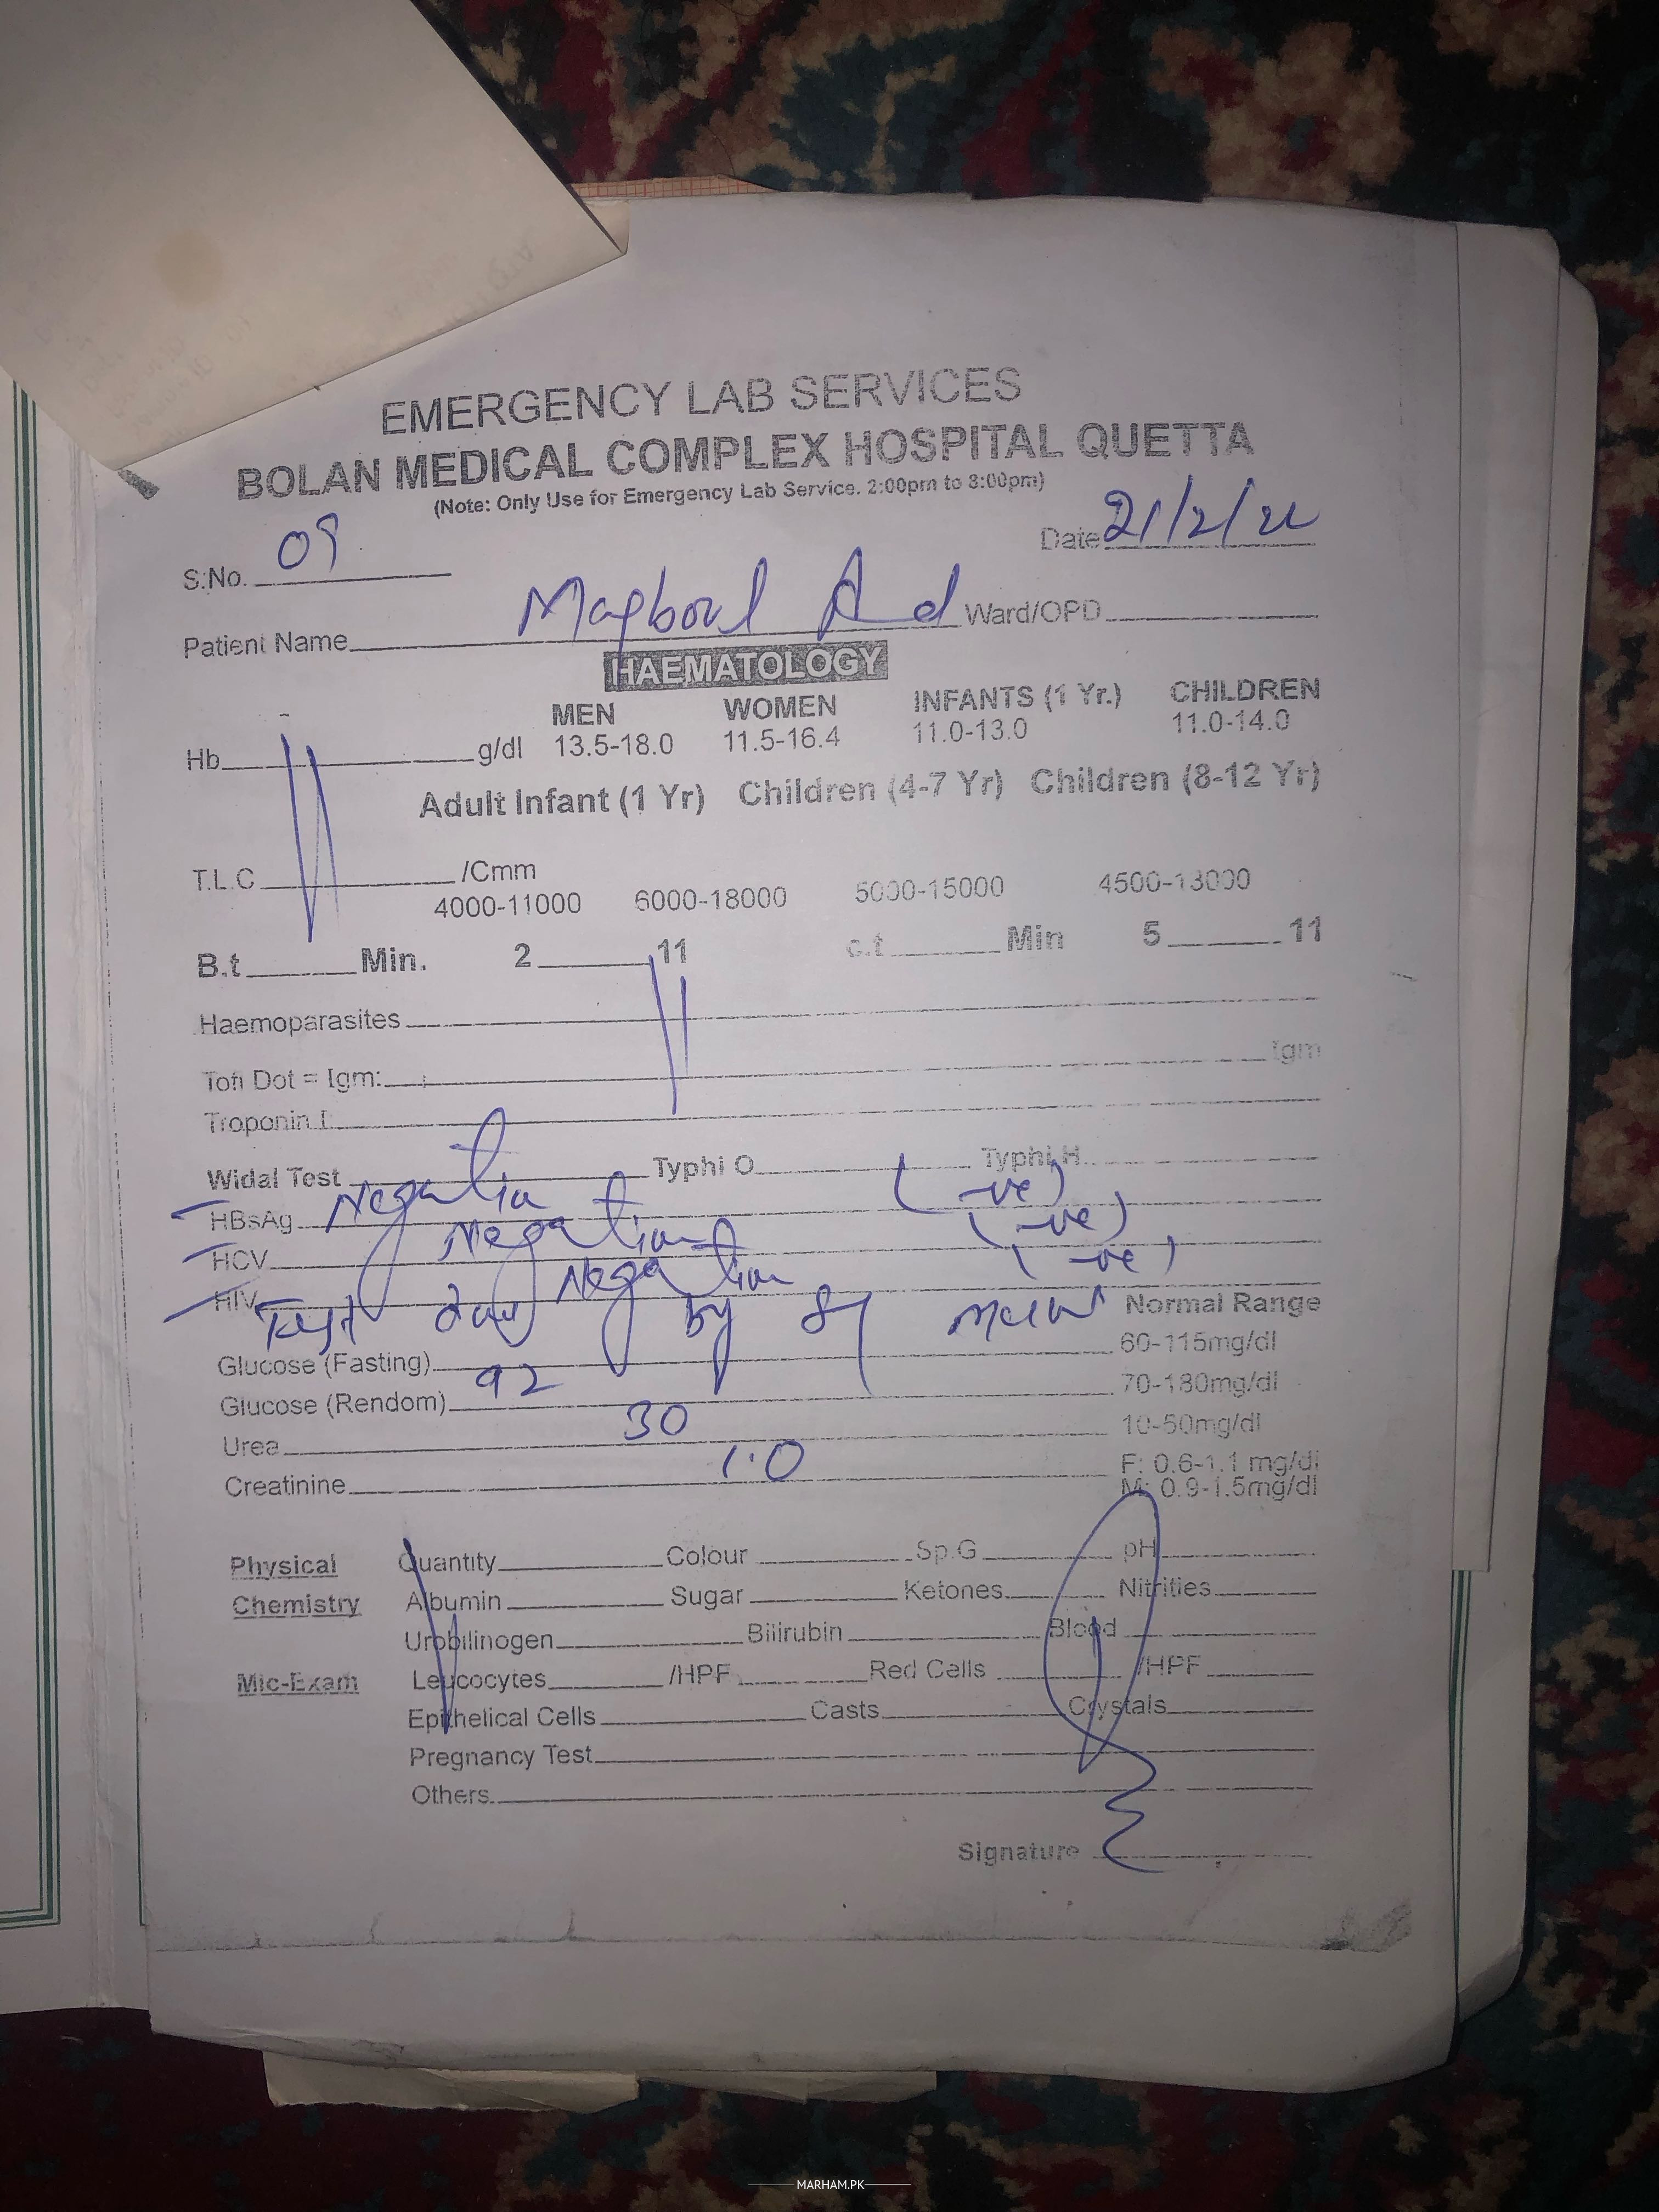 EMERGENCY LAB SERVICES
BOLAN MEDICAL COMPLEX HOSPITAL QUETTA
(Note: Only Use for Emergency Lab Service. 2:00pm to 8:00pm)
S:No. 09 Date 21/2/22
Patient Name Maqbool Ad Ward/OPD
HAEMATOLOGY
MEN WOMEN INFANTS (1 Yr.) CHILDREN
Hb g/dl 13.5-18.0 11.5-16.4 11.0-13.0 11.0-14.0
Adult Infant (1 Yr) Children (4-7 Yr) Children (8-12 Yr)
T.L.C /Cmm
4000-11000 6000-18000 5000-15000 4500-13000
B.t Min. 2 11 c.t Min 5 11
Haemoparasites
Tofi Dot = Igm: Igm
Troponin I:
Widal Test Typhi O Typhi H
HBsAg Negative (-ve)
HCV Negative (-ve)
HIV Negative (-ve)
Test by Normal Range
Glucose (Fasting) 60-115mg/dl
Glucose (Rendom) 92 70-180mg/dl
Urea 30 10-50mg/dl
Creatinine 1.0 F: 0.6-1.1 mg/dl
M: 0.9-1.5mg/dl
Physical Quantity Colour Sp.G pH
Chemistry Albumin Sugar Ketones Nitrities
Urobilinogen Bilirubin Blood
Mic-Exam Leucocytes /HPF Red Cells /HPF
Epithelical Cells Casts Crystals
Pregnancy Test
Others
Signature
MARHAM.PK